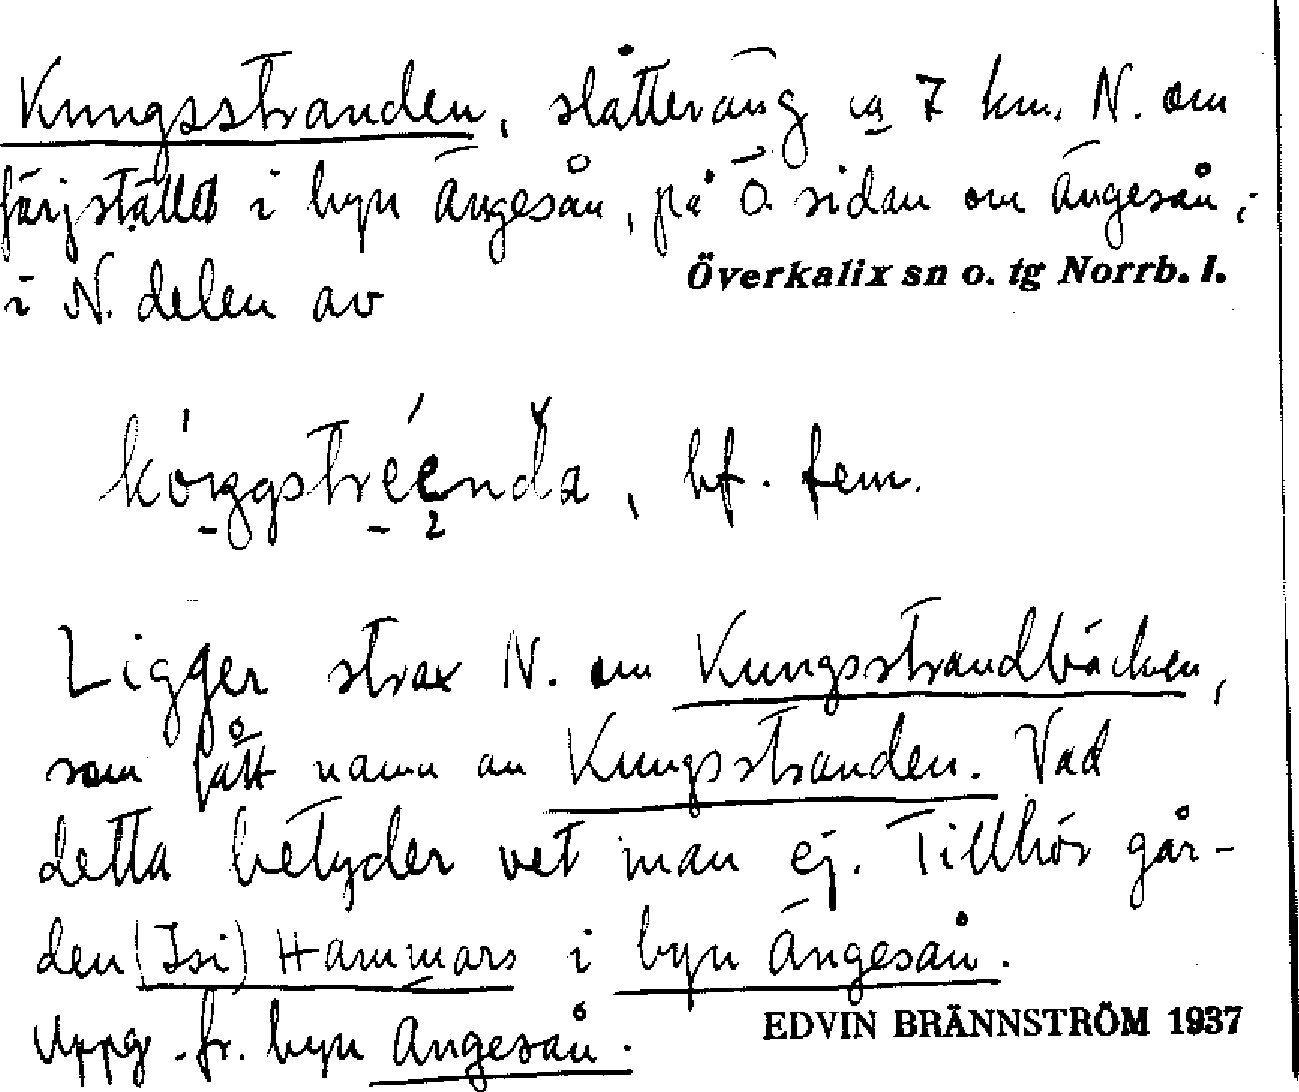 Kungsstranden, slåtteräng ca 7 km. N. om
färjstället i byn Ängesån, på Ö. sidan om Ängesån,
i N. delen av
Överkalix sn o. tg Norrb. l.
hf. fem.
Ligger strax N. om Kungsstrandbäcken,
som fått namn av Kungsstranden. Vad
detta betyder vet man ej. Tillhör går-
den (Isi) Hammars i byn Ängesån.
Uppg. fr. byn Ängesån.
EDVIN BRÄNNSTRÖM 1937